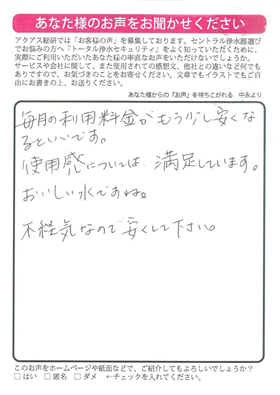 あなた様のお声をお聞かせください
アクアス総研では「お客様の声」を募集しております。セントラル浄水器選び
でお悩みの方へ「トータル浄水セキュリティ」をよく知っていただくために、
実際にご利用いただいたあなた様の率直なお声をいただけないでしょうか。
サービスや会社に関して、また使用されての感想文、他社との違いなど何でも
ありですので、お気づきのことをお寄せください。文章でもイラストでもご自
由にお書きの上、お送りください。
あなた様からの『お声』を待ちこがれる 中永より
毎月の利用料金がもう少し安くな
るといいです。
使用感については、満足しています。
おいしい水ですね。
不経気なので安くして下さい。
このお声をホームページや紙面などで、ご紹介してもよろしいでしょうか?
□はい □匿名 □ダメ ←チェックを入れてください。